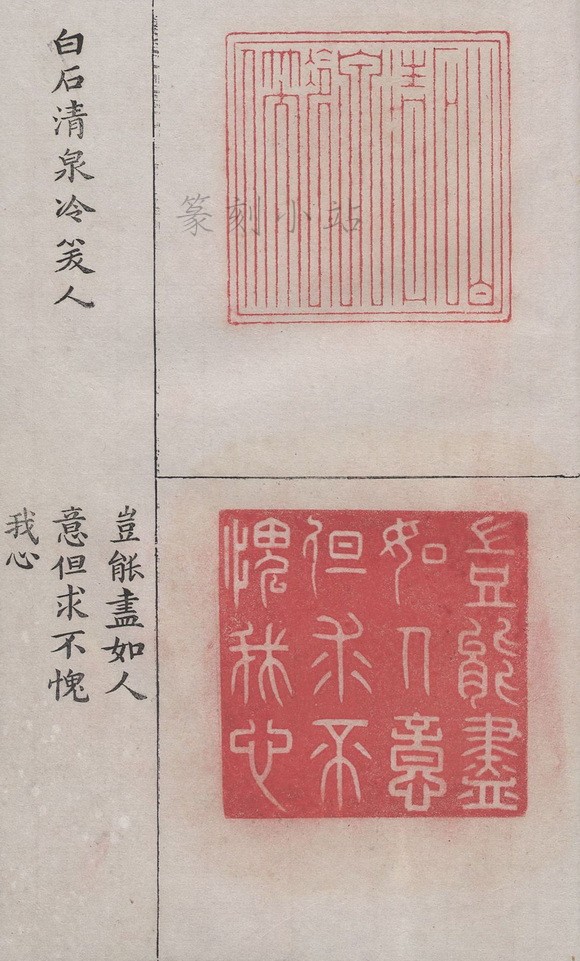 白石清泉冷笑人
篆刻小站
豈能盡如人
意但求不愧
我心
豈能盡
如人意
但求不
愧我心